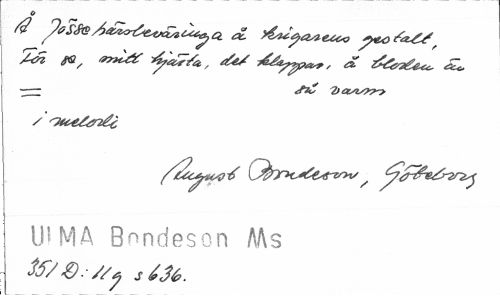 Å Jössehärsbeväringa å krigarens gestalt,
För se, mitt hjärta, det klappar, å bloden än
= så varm
i melodi
August Bondeson, Göteborg
ULMA Bondeson Ms
351 D: 11 q s 636.